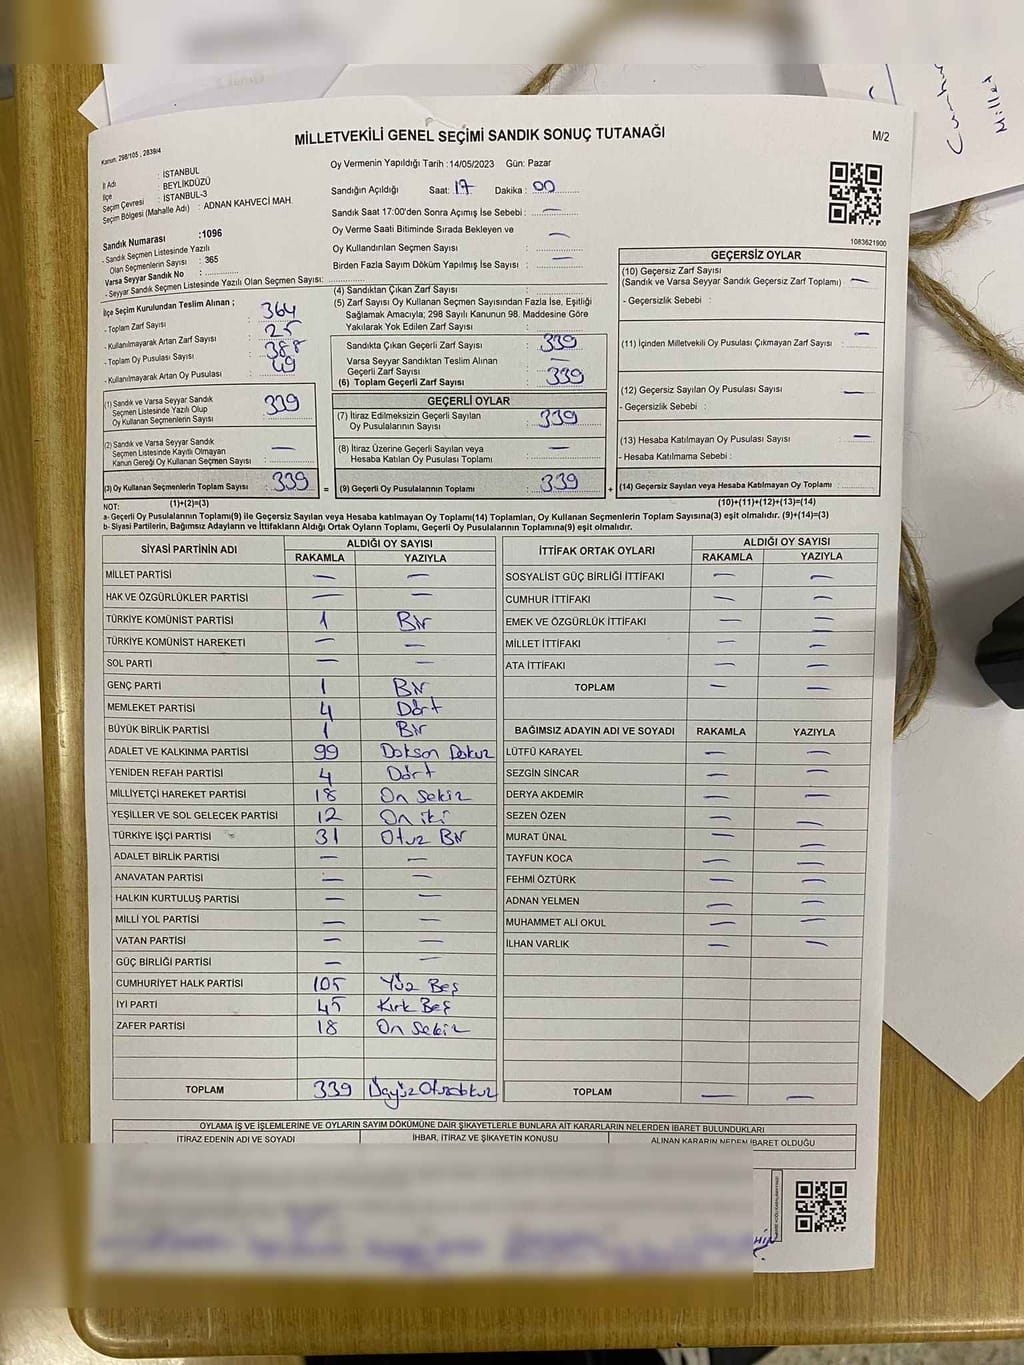 Cumhu
Millet
MİLLETVEKİLİ GENEL SEÇİMİ SANDIK SONUÇ TUTANAĞI
M/2
Kanun: 298/105 , 2839/4
Oy Vermenin Yapıldığı Tarih :14/05/2023 Gün: Pazar
İl Adı : İSTANBUL
İlçe : BEYLİKDÜZÜ
Seçim Çevresi : İSTANBUL-3
Seçim Bölgesi (Mahalle Adı) : ADNAN KAHVECİ MAH.
Sandığın Açıldığı Saat: 17 Dakika : 00
Sandık Saat 17:00'den Sonra Açımış İse Sebebi : —
Oy Verme Saati Bitiminde Sırada Bekleyen ve —
Oy Kullandırılan Seçmen Sayısı
Birden Fazla Sayım Döküm Yapılmış İse Sayısı : —
1083621900
Sandık Numarası :1096
- Sandık Seçmen Listesinde Yazılı
Olan Seçmenlerin Sayısı : 365
Varsa Seyyar Sandık No :
- Seyyar Sandık Seçmen Listesinde Yazılı Olan Seçmen Sayısı:
İlçe Seçim Kurulundan Teslim Alınan ;
- Toplam Zarf Sayısı : 364
- Kullanılmayarak Artan Zarf Sayısı : 25
- Toplam Oy Pusulası Sayısı : 388
- Kullanılmayarak Artan Oy Pusulası : 49
(1) Sandık ve Varsa Seyyar Sandık
Seçmen Listesinde Yazılı Olup
Oy Kullanan Seçmenlerin Sayısı : 339
(2) Sandık ve Varsa Seyyar Sandık
Seçmen Listesinde Kayıtlı Olmayan
Kanun Gereği Oy Kullanan Seçmen Sayısı : —
(3) Oy Kullanan Seçmenlerin Toplam Sayısı : 339
(1)+(2)=(3)
(4) Sandıktan Çıkan Zarf Sayısı :
(5) Zarf Sayısı Oy Kullanan Seçmen Sayısından Fazla İse, Eşitliği
Sağlamak Amacıyla; 298 Sayılı Kanunun 98. Maddesine Göre
Yakılarak Yok Edilen Zarf Sayısı :
Sandıkta Çıkan Geçerli Zarf Sayısı : 339
Varsa Seyyar Sandıktan Teslim Alınan
Geçerli Zarf Sayısı : —
(6) Toplam Geçerli Zarf Sayısı : 339
GEÇERLİ OYLAR
(7) İtiraz Edilmeksizin Geçerli Sayılan
Oy Pusulalarının Sayısı : 339
(8) İtiraz Üzerine Geçerli Sayılan veya
Hesaba Katılan Oy Pusulası Toplamı : —
= (9) Geçerli Oy Pusulalarının Toplamı : 339 +
GEÇERSİZ OYLAR
(10) Geçersiz Zarf Sayısı
(Sandık ve Varsa Seyyar Sandık Geçersiz Zarf Toplamı) : —
- Geçersizlik Sebebi :
(11) İçinden Milletvekili Oy Pusulası Çıkmayan Zarf Sayısı : —
(12) Geçersiz Sayılan Oy Pusulası Sayısı : —
- Geçersizlik Sebebi :
(13) Hesaba Katılmayan Oy Pusulası Sayısı : —
- Hesaba Katılmama Sebebi :
(14) Geçersiz Sayılan veya Hesaba Katılmayan Oy Toplamı :
(10)+(11)+(12)+(13)=(14)
NOT:
a- Geçerli Oy Pusulalarının Toplamı(9) ile Geçersiz Sayılan veya Hesaba Katılmayan Oy Toplamı(14) Toplamları, Oy Kullanan Seçmenlerin Toplam Sayısına(3) eşit olmalıdır. (9)+(14)=(3)
b- Siyasi Partilerin, Bağımsız Adayların ve İttifakların Aldığı Ortak Oyların Toplamı, Geçerli Oy Pusulalarının Toplamına(9) eşit olmalıdır.
SİYASİ PARTİNİN ADI ALDIĞI OY SAYISI
RAKAMLA YAZIYLA
MİLLET PARTİSİ — —
HAK VE ÖZGÜRLÜKLER PARTİSİ — —
TÜRKİYE KOMÜNİST PARTİSİ 1 Bir
TÜRKİYE KOMÜNİST HAREKETİ — —
SOL PARTİ — —
GENÇ PARTİ 1 Bir
MEMLEKET PARTİSİ 4 Dört
BÜYÜK BİRLİK PARTİSİ 1 Bir
ADALET VE KALKINMA PARTİSİ 99 Doksan Dokuz
YENİDEN REFAH PARTİSİ 4 Dört
MİLLİYETÇİ HAREKET PARTİSİ 18 On Sekiz
YEŞİLLER VE SOL GELECEK PARTİSİ 12 On iki
TÜRKİYE İŞÇİ PARTİSİ 31 Otuz Bir
ADALET BİRLİK PARTİSİ — —
ANAVATAN PARTİSİ — —
HALKIN KURTULUŞ PARTİSİ — —
MİLLİ YOL PARTİSİ — —
VATAN PARTİSİ — —
GÜÇ BİRLİĞİ PARTİSİ — —
CUMHURİYET HALK PARTİSİ 105 Yüz Beş
İYİ PARTİ 45 Kırk Beş
ZAFER PARTİSİ 18 On Sekiz
TOPLAM 339 Üçyüz Otuzdokuz
İTTİFAK ORTAK OYLARI ALDIĞI OY SAYISI
RAKAMLA YAZIYLA
SOSYALİST GÜÇ BİRLİĞİ İTTİFAKI — —
CUMHUR İTTİFAKI — —
EMEK VE ÖZGÜRLÜK İTTİFAKI — —
MİLLET İTTİFAKI — —
ATA İTTİFAKI — —
TOPLAM — —
BAĞIMSIZ ADAYIN ADI VE SOYADI RAKAMLA YAZIYLA
LÜTFÜ KARAYEL — —
SEZGİN SİNCAR — —
DERYA AKDEMİR — —
SEZEN ÖZEN — —
MURAT ÜNAL — —
TAYFUN KOCA — —
FEHMİ ÖZTÜRK — —
ADNAN YELMEN — —
MUHAMMET ALİ OKUL — —
İLHAN VARLIK — —
TOPLAM — —
OYLAMA İŞ VE İŞLEMLERİNE VE OYLARIN SAYIM DÖKÜMÜNE DAİR ŞİKAYETLERLE BUNLARA AİT KARARLARIN NELERDEN İBARET BULUNDUKLARI
İTİRAZ EDENİN ADI VE SOYADI İHBAR, İTİRAZ VE ŞİKAYETİN KONUSU ALINAN KARARIN NEDEN İBARET OLDUĞU